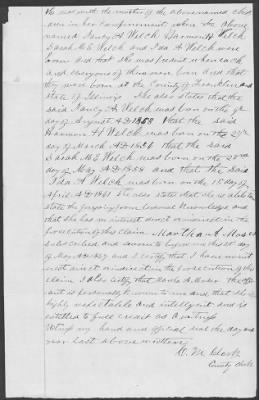 She was with the mother of the above named chil
dren in her confinement when the above
named Nancy A Welch Harmon H Welch
Sarah M. E Welch and Ida A Welch were
born and that she was present when each
and everyone of them were born and that
they were born in the County of Franklin and
State of Illinois. She also states that the
said Nancy A Welch was born on the
day of August A.D 1853 that the said
Harmon H Welch was born on the 29th
day of March A.D 1856 that the said
Sarah M E Welch was born on the 22nd
day of May A.D 1858 and that the said
Ida A Welch was born on the 15 day of
April A.D 1861 She also states that she is able to
state the foregoing from personal Knowledge and
that she has no interest direct or indirect in the
prosecution of this claim. Martha A.
Subscribed and sworn to before me this 25 day
of May A.D. 1867 and I certify that I have no interest
direct or indirect in the prosecution of this
claim I also certify that Martha A the affi
ant is personally known to me and that she is
highly respectable and intelligent and is
entitled to full credit as a witness
Witness my hand and official seal the day and
year last above written
Clerk
County Clerk